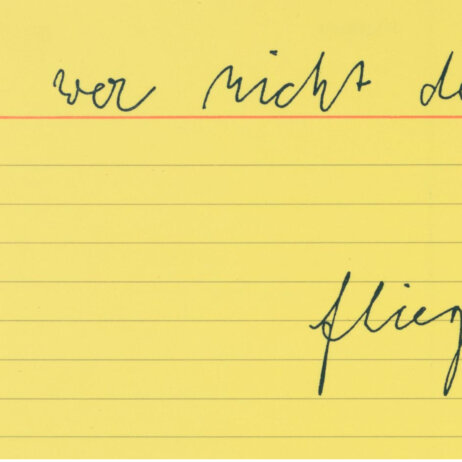 wer nicht de
flieg